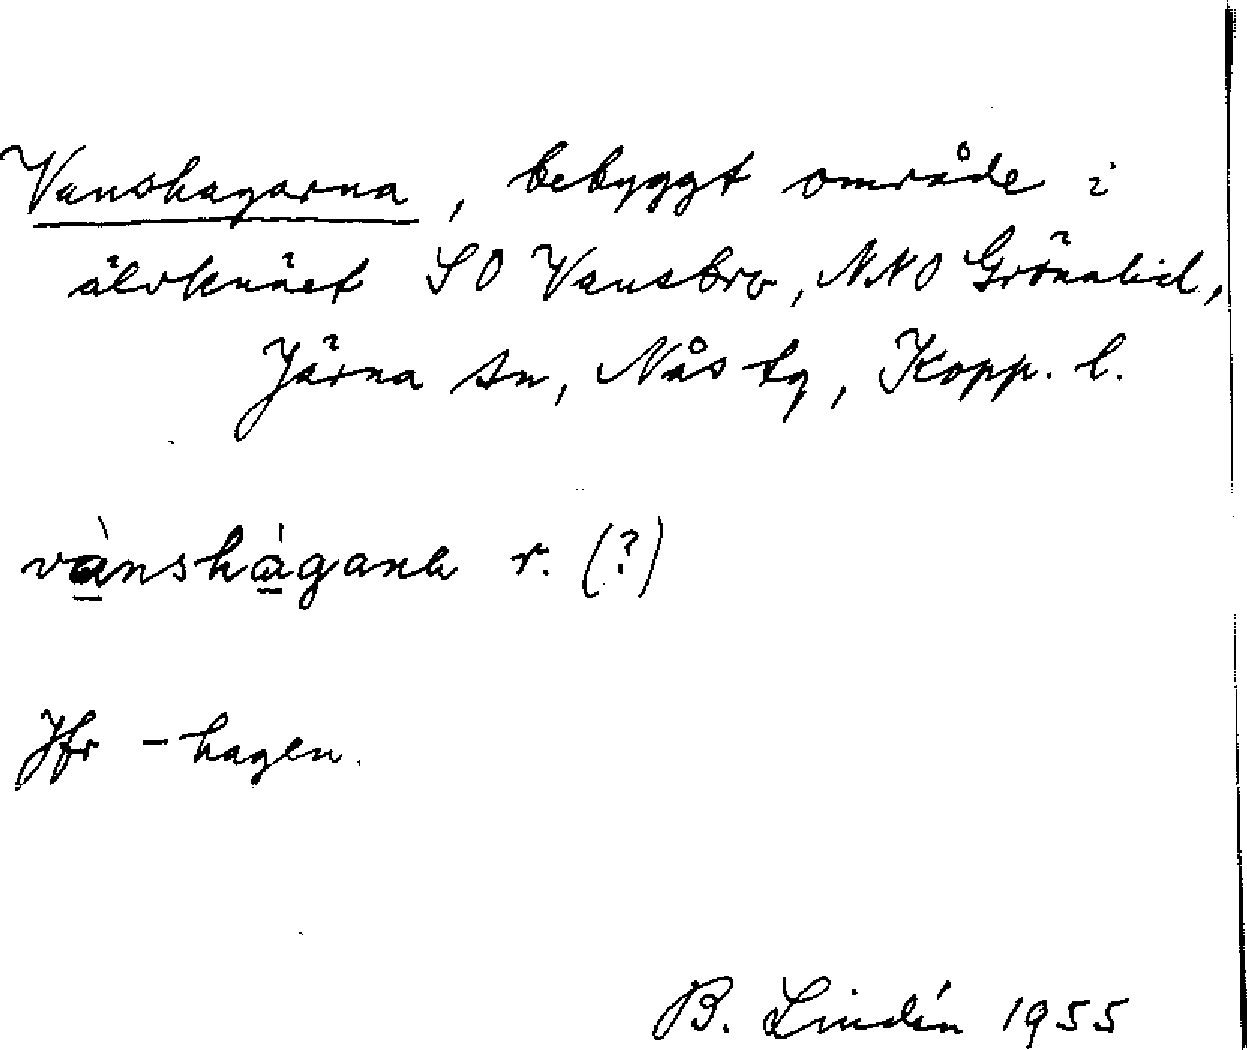 Vanshagarna, bebyggt område i
älvknäet SO Vansbro, NNO Grönalid,
Järna sn, Nås tg, Kopp. l.
vànshágana r. (?)
Jfr -hagen.
B. Lindén 1955